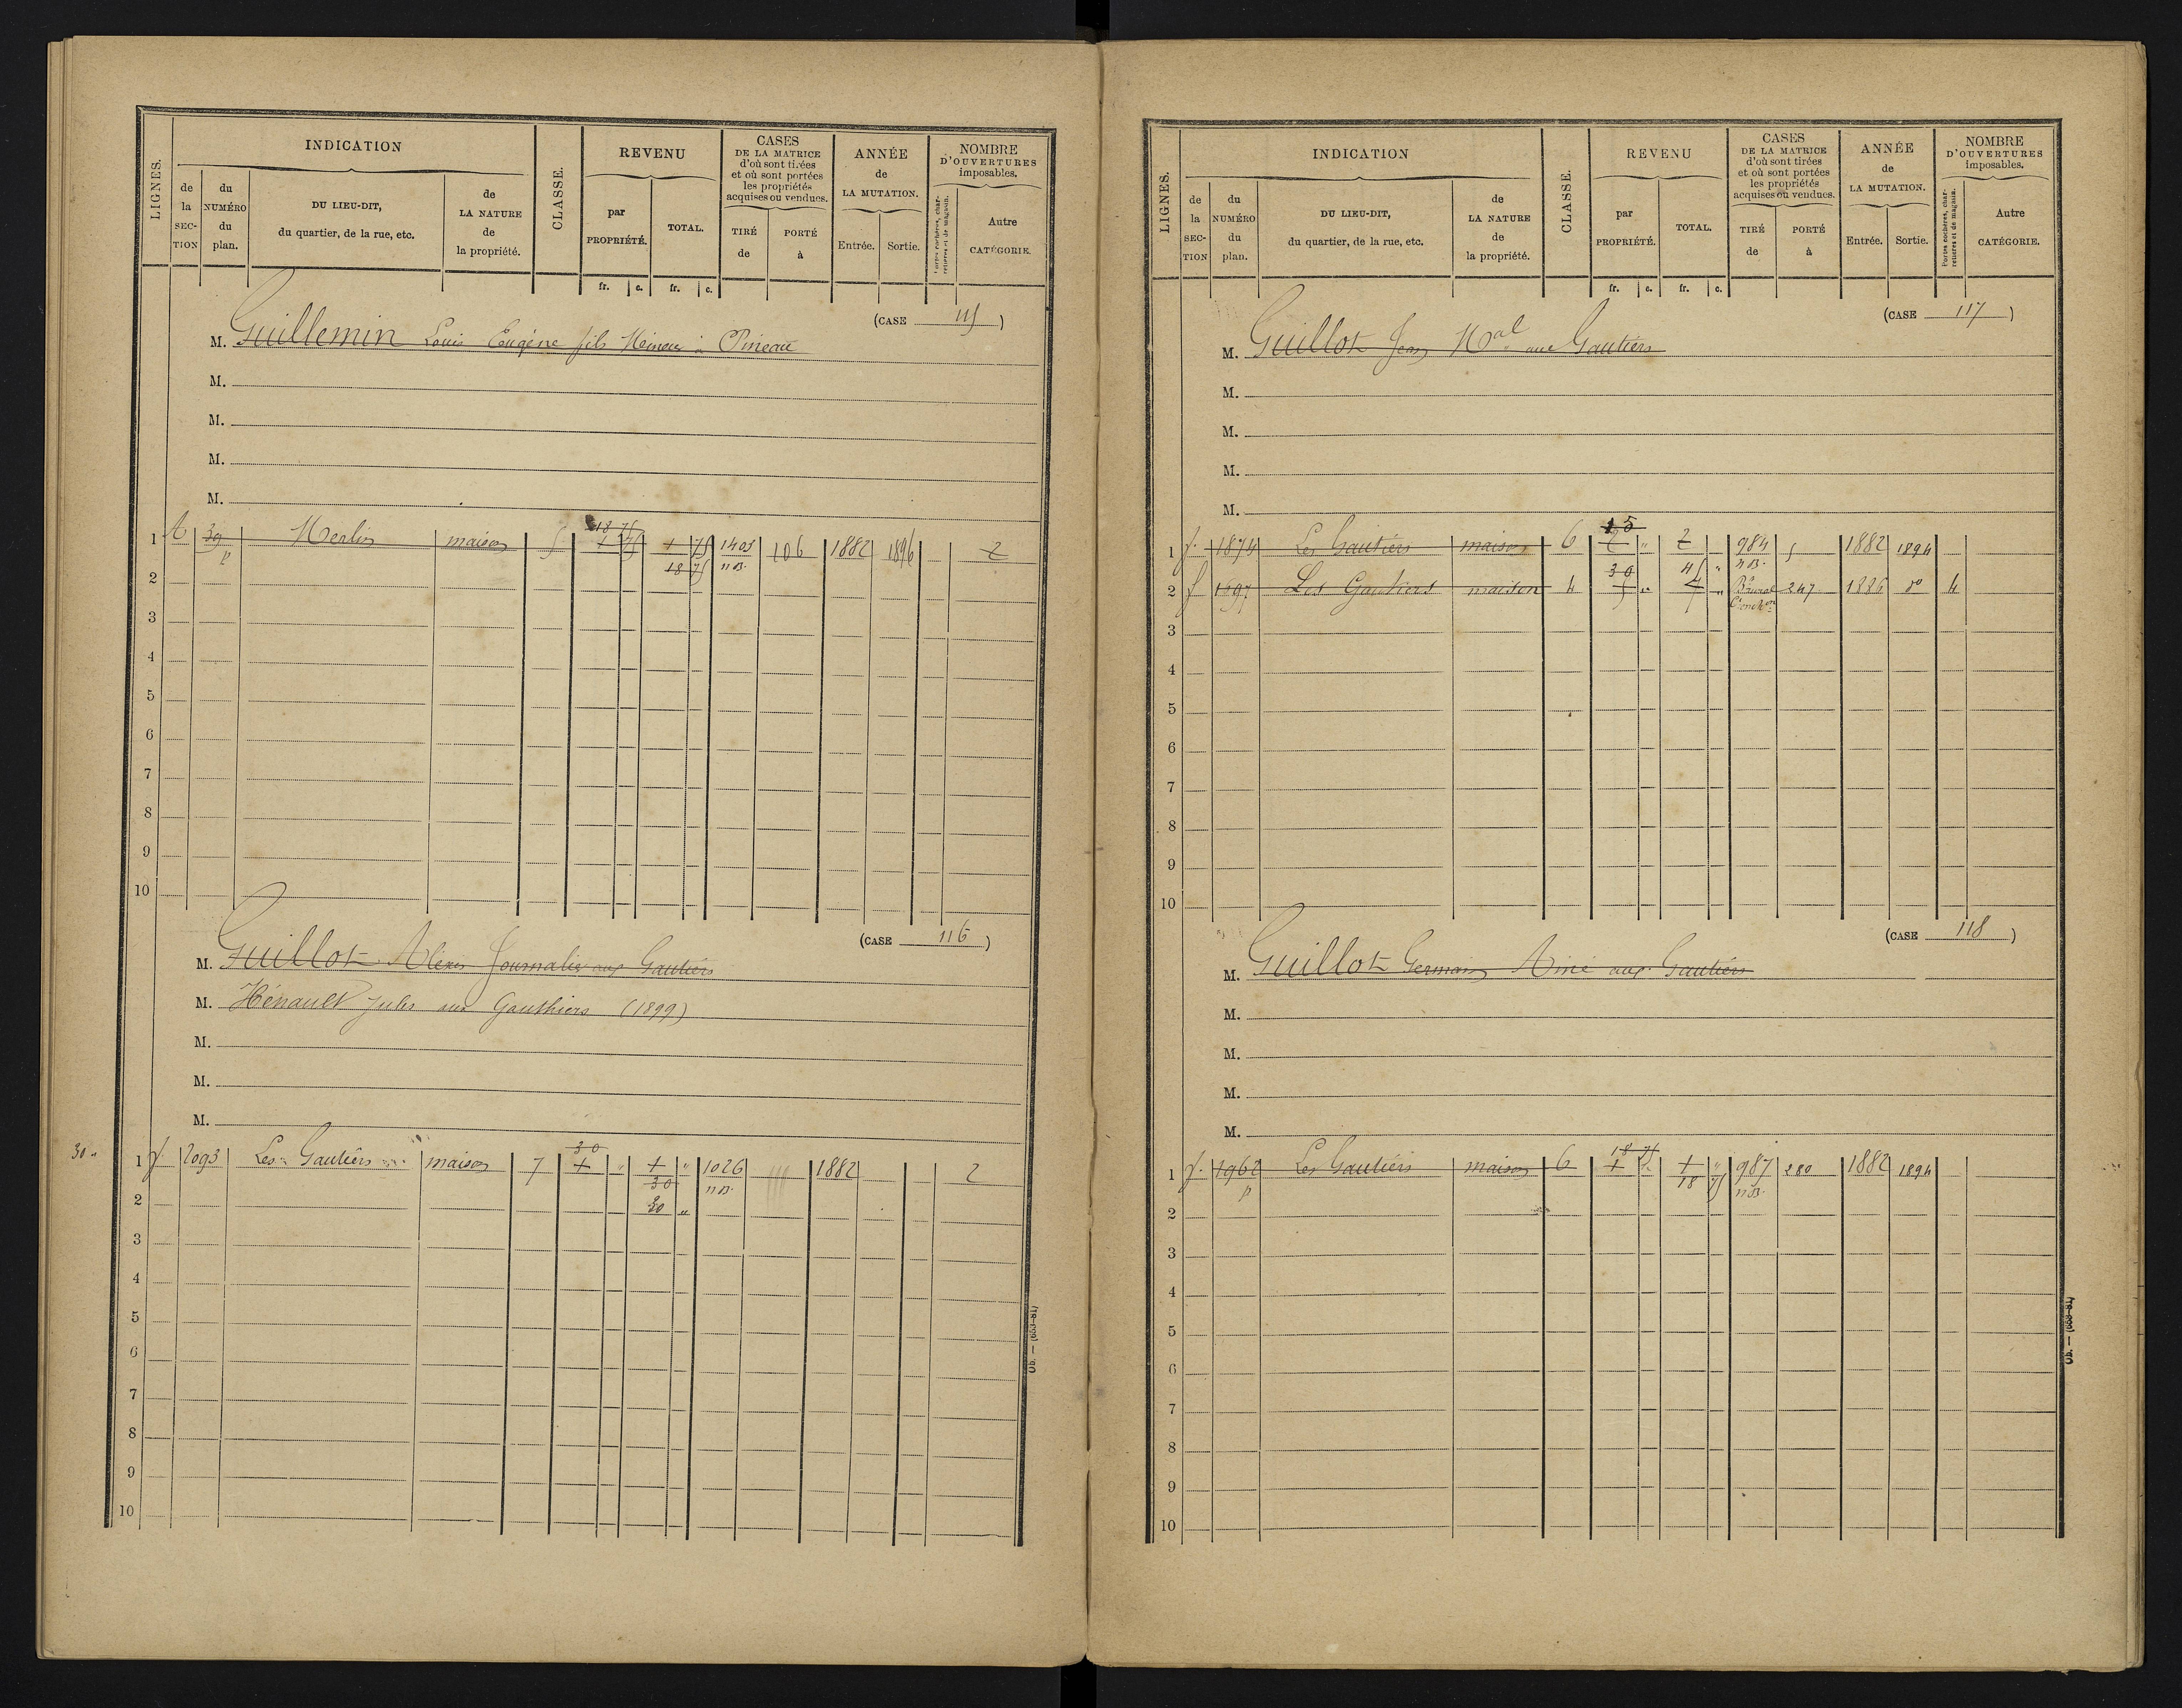 LIGNES.
INDICATION
de la SECTION
du NUMÉRO du plan.
DU LIEU-DIT, du quartier, de la rue, etc.
de LA NATURE de la propriété.
CLASSE.
REVENU
par PROPRIÉTÉ.
TOTAL.
fr. c. fr. c.
CASES DE LA MATRICE d'où sont tirées et où sont portées les propriétés acquises ou vendues.
TIRÉ de
PORTÉ à
ANNÉE de LA MUTATION.
Entrée. Sortie.
NOMBRE D'OUVERTURES imposables.
Portes cochères, charretières et de magasin.
Autre CATÉGORIE.
(CASE 115)
M. Guillemin Louis Eugène fils Mineur à Pineau
M.
M.
M.
M.
18 75
1 A 39 Merlin maison 5 1 75 1 75 1405 106 1882 1896 2
p 18 75 nB.
2
3
4
5
6
7
8
9
10
(CASE 116)
M. Guillot Alexis Journalier aux Gautiers
M. Hénault Jules aux Gauthiers (1899)
M.
M.
M.
30
30 " 1 f 2093 Les Gautiers maison 7 1 " 1 " 1026 1882 2
30 nB.
2 20 "
3
4
5
6
7
8
9
10
Ob. — (683-81)
LIGNES.
INDICATION
de la SECTION
du NUMÉRO du plan.
DU LIEU-DIT, du quartier, de la rue, etc.
de LA NATURE de la propriété.
CLASSE.
REVENU
par PROPRIÉTÉ.
TOTAL.
fr. c. fr. c.
CASES DE LA MATRICE d'où sont tirées et où sont portées les propriétés acquises ou vendues.
TIRÉ de
PORTÉ à
ANNÉE de LA MUTATION.
Entrée. Sortie.
NOMBRE D'OUVERTURES imposables.
Portes cochères, charretières et de magasin.
Autre CATÉGORIE.
(CASE 117)
M. Guillot Jean Mal aux Gautiers
M.
M.
M.
M.
15
1 f. 1874 Les Gautiers maison 6 2 " 2 984 5 1882 1894
30 45 " nB.
2 f 1897 Les Gautiers maison 4 5 " 7 " 247 1886 do 4
3
4
5
6
7
8
9
10
(CASE 118)
M. Guillot Germain Aîné aux Gautiers
M.
M.
M.
M.
18 75
1 f. 1962 Les Gautiers maison 6 1 " 1 " 987 280 1882 1894
p 18 75 nB.
2
3
4
5
6
7
8
9
10
Ob. — (683-81)